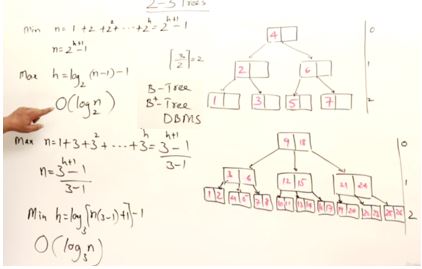 2-3 Trees
Min n = 1 + 2 + 2² + ... + 2ʰ = 2ʰ⁺¹ - 1
n = 2ʰ⁺¹ - 1
Max h = log₂(n-1) - 1
O(log₂n)
⌈3/2⌉ = 2
B-Tree
B⁺-Tree
DBMS
4
2 6
1 3 5 7
0
1
2
Max n = 1 + 3 + 3² + ... + 3ʰ = 3ʰ⁺¹ - 1 / 3-1
n = 3ʰ⁺¹ - 1 / 3-1
Min h = log₃[n(3-1)+1] - 1
O(log₃n)
9 18
3 6 12 15 21 24
1 2 4 5 7 8 10 11 13 14 16 17 19 20 22 23 25 26
0
1
2